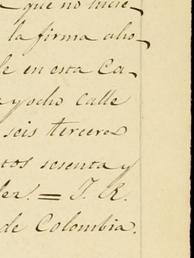 que no hicie-
la firma aho-
le en esta Ca-
a y ocho calle
seis tercera
tos sesenta y
der. = J. R.
de Colombia.